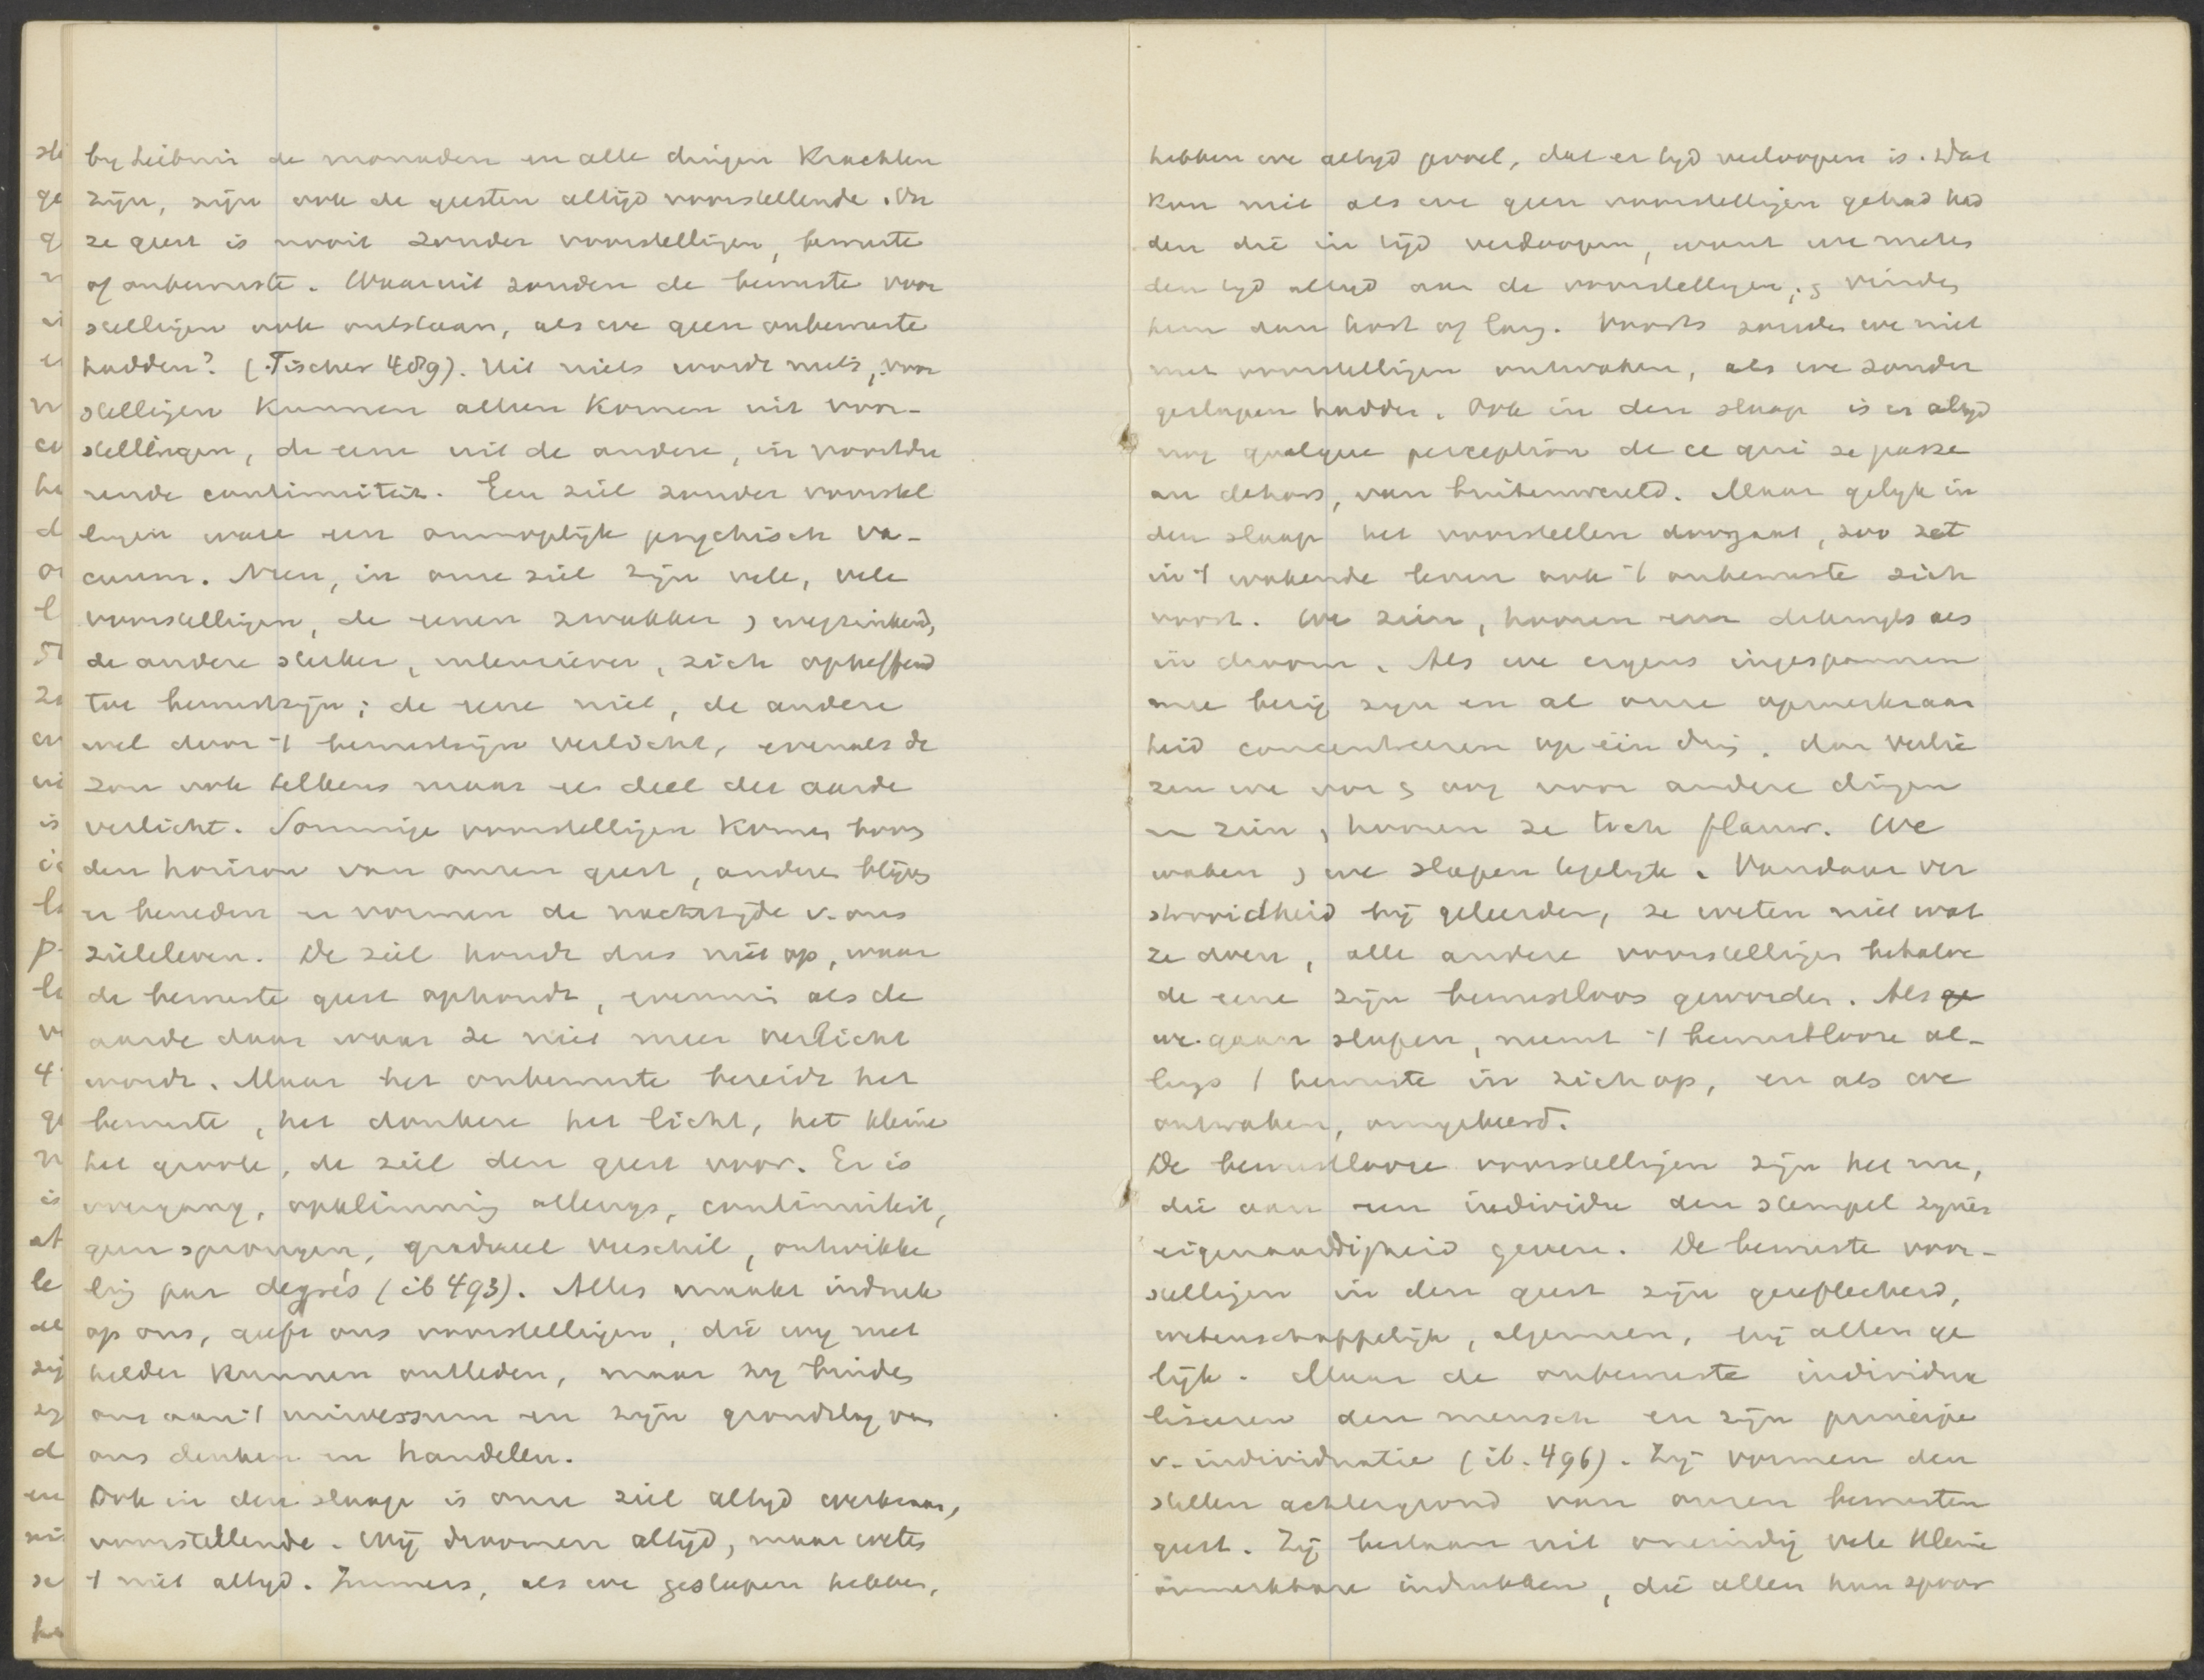 by Leibniz de monaden en alle dingen Krachten
zijn, zijn ook de geesten altijd voorstellende. On
ze geest is nooit zonder voorstellingen, bewuste
of onbewuste. Waaruit zouden de bewuste voor
stellingen ook ontstaan, als we geen onbewuste
hadden? (Fischer 489). Uit niets wordt niets, voor
stellingen Kunnen alleen Komen uit voor-
stellingen, de eene uit de andere, in voortdu
rende continuiteit. Een ziel zonder voorstel
lingen ware een onmogelijk psychisch va-
cuum. Neen, in onze ziel zijn vele, vele
voorstellingen, de eenen zwakker, wegzinkend,
de andere sterker, intensiever, zich opheffend
tot bewustzijn; de eene niet, de andere
wel door 't bewustzijn verlicht, evenals de
zon ook telkens maar een deel der aarde
verlicht. Sommige voorstellingen Komen boven
den horizon van onzen geest, andere blijven
er beneden en vormen de nachtzijde v. ons
zieleleven. De ziel houdt dus niet op, waar
de bewuste geest ophoudt, evenmin als de
aarde daar waar ze niet meer verlicht
wordt. Maar het onbewuste bereidt het
bewuste, het donkere het licht, het kleine
het groote, de ziel den geest voor. Er is
overgang, opklimming allengs, continuiteit,
geen sprongen, gradueel verschil, ontwikke
ling par degrés (ib 493). Alles maakt indruk
op ons, geeft ons voorstellingen, die wy niet
helder Kunnen ontleden, maar zy binden
ons aan 't universum en zijn grondslag van
ons denken en handelen.
Ook in den slaap is onze ziel altyd werkzaam,
voorstellende. Wij droomen altijd, maar weten
't niet altyd. Immers, als we geslapen hebben,
hebben we altyd gevoel, dat er tyd verloopen is. Dat
Kon niet als we geen voorstellingen gehad had
den die in tijd verloopen, want we meten
den tyd altyd aan de voorstellingen, & vinden
hem dan kort of lang. Voorts zouden we niet
met voorstellingen ontwaken, als we zonder
geslapen hadden. Ook in den slaap is er altyd
nog quelque perception de ce qui se passe
au dehors, van buitenwereld. Maar gelyk in
den slaap het voorstellen doorgaat, zoo zet
in 't wakende leven ook 't onbewuste zich
voort. We zien, hooren een en ander als
in droom. Als we ergens ingespannen
mee bezig zyn en al onze opmerkzaam
heid concentreeren op één ding, dan verlie
zen we oor & oog voor andere dingen
en zien, hooren ze toch flauw. We
waken, we slapen tegelyk. Vandaar ver
strooidheid bij geleerden, ze weten niet wat
ze doen, alle andere voorstellingen behalve
de eene zijn bewustloos geworden. Als ge
we gaan slapen, neemt 't bewustlooze al-
lengs 't bewuste in zich op, en als we
ontwaken, omgekeerd.
De bewustlooze voorstellingen zijn het nu,
die aan een individu den stempel zyner
eigenaardigheid geven. De bewuste voor-
stellingen in den geest zijn gereflecteerd,
wetenschappelijk, algemeen, bij allen ge
lijk. Maar de onbewuste individua
liseeren den mensch en zijn principe
v. individuatie (ib. 496). Zij vormen den
stillen achtergrond van onzen bewusten
geest. Zij bestaan uit oneindig vele kleine
onmerkbare indrukken, die allen hun spoor